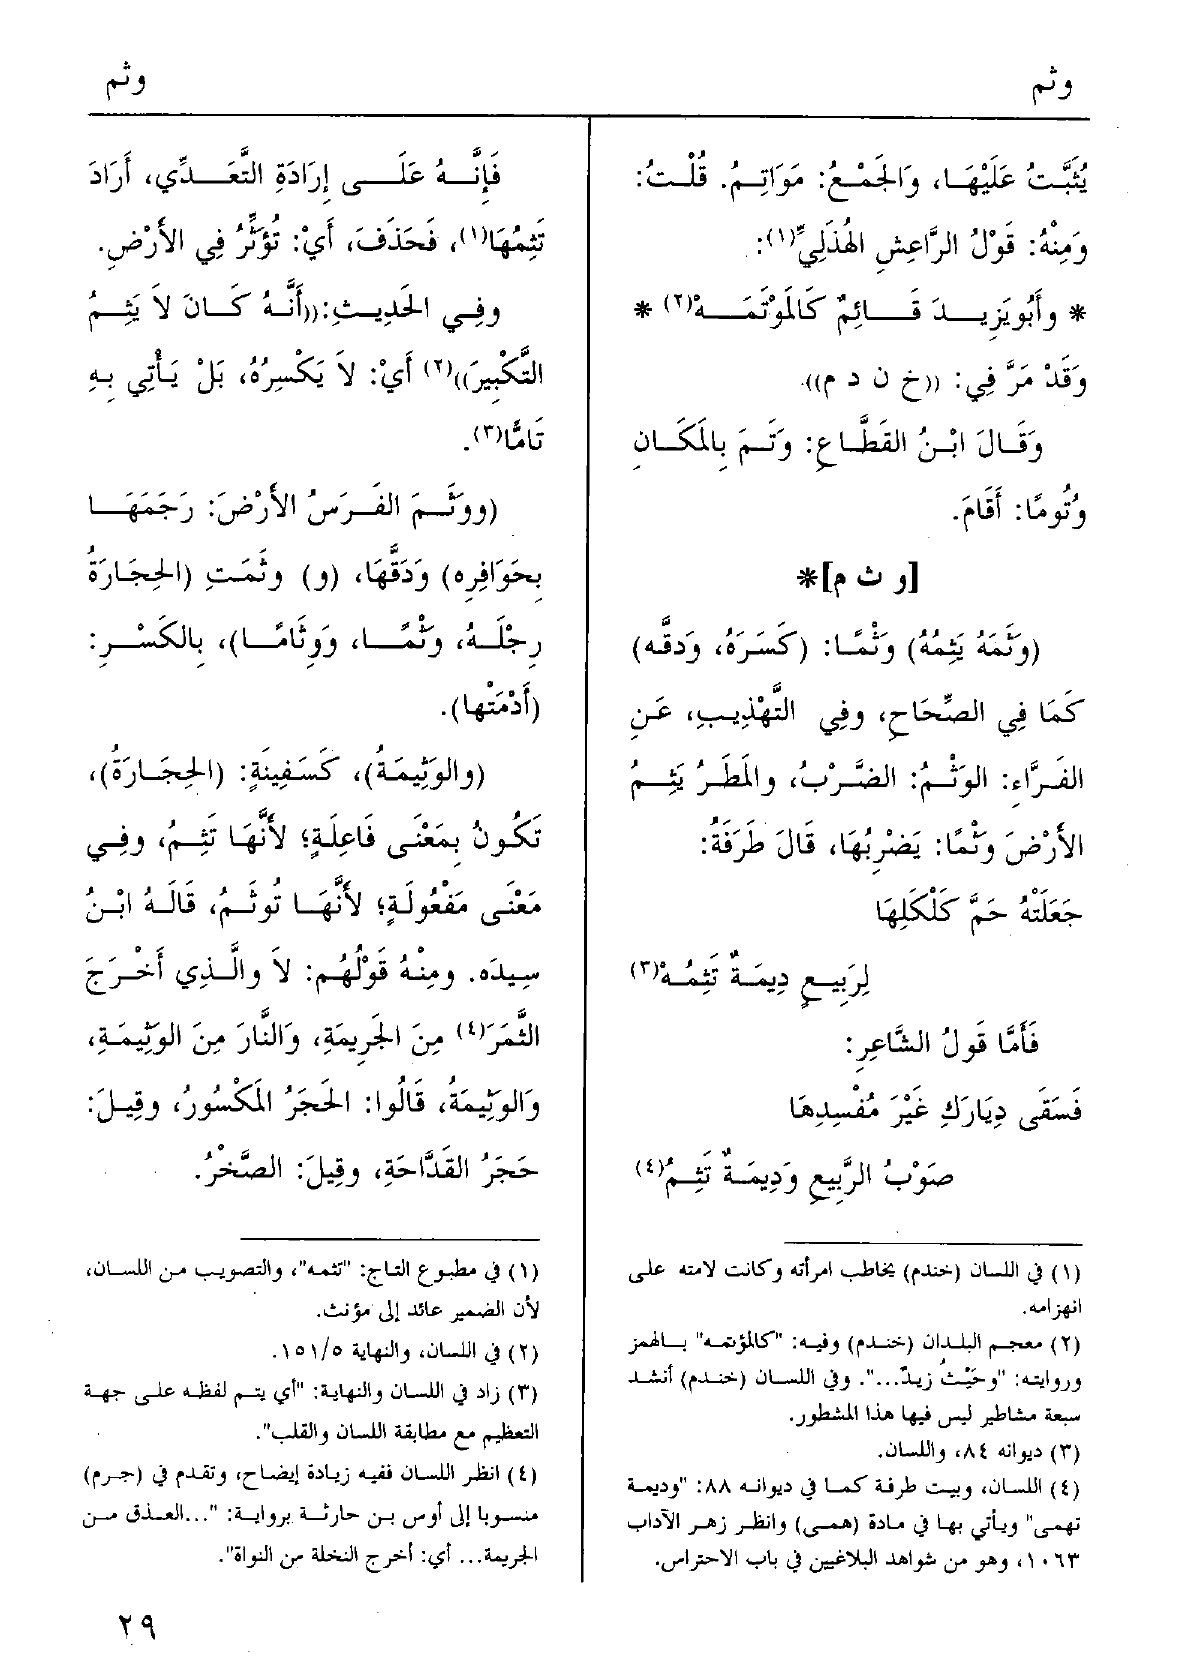 وثم
وثم
يُثَبَّتُ عَلَيْهَا، وَالجَمْعُ: مَوَاتِمُ. قُلْتُ:
وَمِنْهُ: قَوْلُ الرَّاعِشِ الهُذَلِيِّ(١):
* وأَبُو يَزِيدَ قَائِمٌ كَالمَوْتَمَهْ(٢) *
وَقَدْ مَرَّ فِي: ((خ ن د م)).
وَقَالَ ابْنُ القَطَّاعِ: وَتَمَ بِالمَكَانِ
وُتُومًا: أَقَامَ.
[و ث م]*
(وَثَمَهُ يَثِمُهُ) وَثْمًا: (كَسَرَهُ، وَدَقَّه)
كَمَا فِي الصِّحَاحِ، وفِي التَّهْذِيبِ، عَنِ
الفَرَّاءِ: الوَثْمُ: الضَّرْبُ، والمَطَرُ يَثِمُ
الأَرْضَ وَثْمًا: يَضْرِبُهَا، قَالَ طَرَفَةُ:
جَعَلَتْهُ حَمَّ كَلْكَلِهَا
لِرَبِيعٍ دِيمَةٌ تَثِمُهْ(٣)
فَأَمَّا قَوْلُ الشَّاعِرِ:
فَسَقَى دِيَارَكِ غَيْرَ مُفْسِدِهَا
صَوْبُ الرَّبِيعِ وَدِيمَةٌ تَثِمُ(٤)
(١) في اللسان (خندم) يخاطب امرأته وكانت لامته على
انهزامه.
(٢) معجم البلدان (خندم) وفيه: "كالمؤتمه" بالهمز
وروايته: "وحَيْثُ زيدٌ...". وفي اللسان (خندم) أنشد
سبعة مشاطير ليس فيها هذا المشطور.
(٣) ديوانه ٨٤، واللسان.
(٤) اللسان، وبيت طرفة كما في ديوانه ٨٨: "وديمة
تهمى" ويأتي بها في مادة (همى) وانظر زهر الآداب
١٠٦٣، وهو من شواهد البلاغيين في باب الاحتراس.
فَإِنَّهُ عَلَى إِرَادَةِ التَّعَدِّي، أَرَادَ
تَثِمُهَا(١)، فَحَذَفَ، أَيْ: تُؤَثِّرُ فِي الأَرْضِ.
وفِي الحَدِيثِ: ((أَنَّهُ كَانَ لاَ يَثِمُ
التَّكْبِيرَ))(٢) أَيْ: لاَ يَكْسِرُهُ، بَلْ يَأْتِي بِهِ
تَامًّا(٣).
(ووَثَمَ الفَرَسُ الأَرْضَ: رَجَمَهَا
بِحَوَافِرِه) وَدَقَّهَا، (و) وثَمَتِ (الحِجَارَةُ
رِجْلَهُ، وَثْمًا، وَوِثَامًا)، بِالكَسْرِ:
(أَدْمَتْها).
(والوَثِيمَةُ)، كَسَفِينَةٍ: (الحِجَارَةُ)،
تَكُونُ بِمَعْنَى فَاعِلَةٍ؛ لأَنَّهَا تَثِمُ، وفِي
مَعْنَى مَفْعُولَةٍ؛ لأَنَّهَا تُوثَمُ، قَالَهُ ابْنُ
سِيدَه. ومِنْهُ قَوْلُهُم: لاَ والَّذِي أَخْرَجَ
الثَّمَرَ(٤) مِنَ الجَرِيمَةِ، وَالنَّارَ مِنَ الوَثِيمَةِ،
وَالوَثِيمَةُ، قَالُوا: الحَجَرُ المَكْسُورُ، وقِيلَ:
حَجَرُ القَدَّاحَةِ، وقِيلَ: الصَّخْرُ.
(١) في مطبوع التاج: "تثمه"، والتصويب من اللسان،
لأن الضمير عائد إلى مؤنث.
(٢) في اللسان، والنهاية ١٥١/٥.
(٣) زاد في اللسان والنهاية: "أي يتم لفظه على جهة
التعظيم مع مطابقة اللسان والقلب".
(٤) انظر اللسان ففيه زيادة إيضاح، وتقدم في (جرم)
منسوبا إلى أوس بن حارثة برواية: "...العذق من
الجريمة... أي: أخرج النخلة من النواة".
٢٩